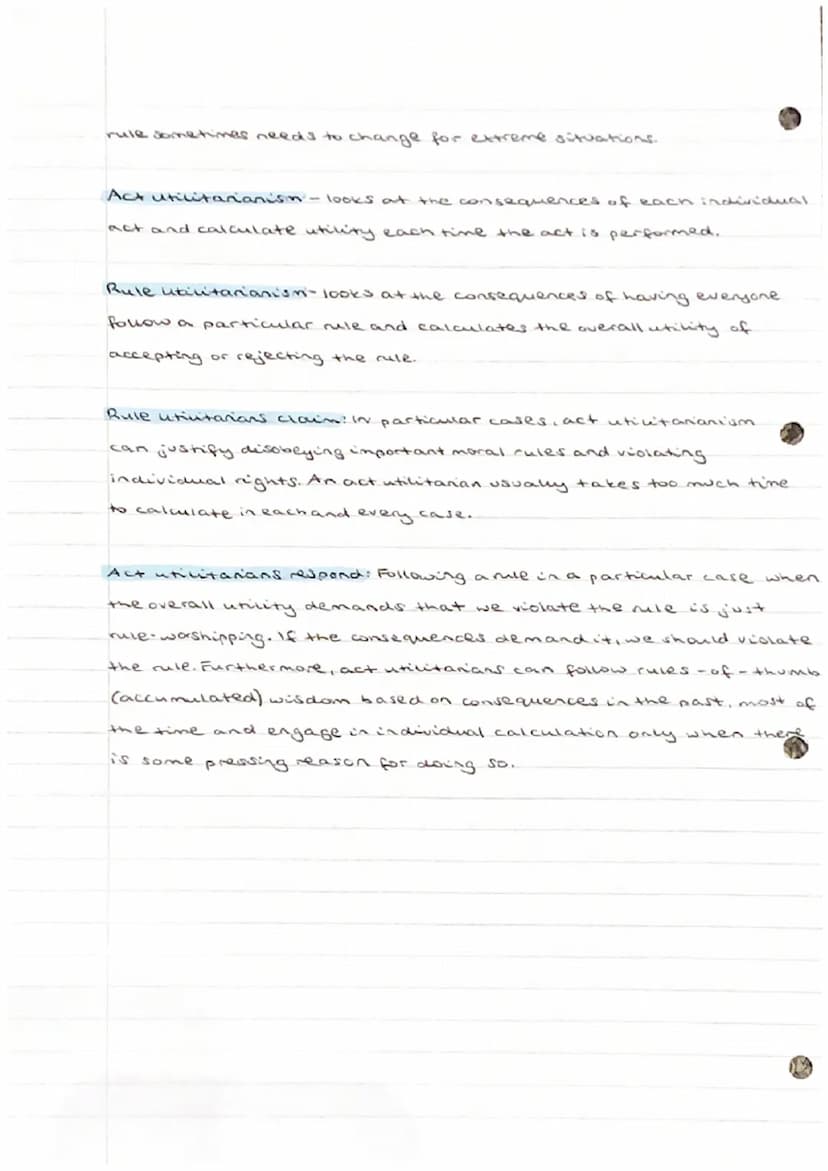 rule sometimes needs to change for extreme situations.
Act utilitarianism - looks at the consequences of each individual
act and calculate utility each time the act is performed.
Rule utilitarianism - looks at the consequences of having everyone
follow a particular rule and calculates the overall utility of
accepting or rejecting the rule.
Rule utilitarians claim: In particular cases, act utilitarianism
can justify disobeying important moral rules and violating
individual rights. An act utilitarian usually takes too much time
to calculate in each and every case.
Act utilitarians respond: Following a rule in a particular case when
the overall utility demands that we violate the rule is just
rule-worshipping. If the consequences demand it, we should violate
the rule. Furthermore, act utilitarians can follow rules-of-thumb
(accumulated) wisdom based on consequences in the past, most of
the time and engage in individual calculation only when there
is some pressing reason for doing so.